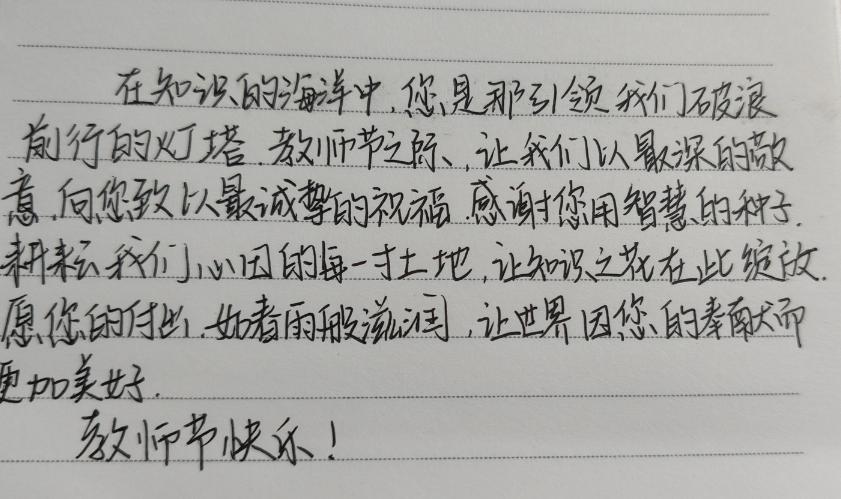 在知识的海洋中,您是那引领我们破浪
前行的灯塔.教师节之际、让我们以最深的敬
意,向您致以最诚挚的祝福.感谢您用智慧的种子.
耕耘我们心田的每一寸土地,让知识之花在此绽放.
愿您的付出,如春雨般滋润,让世界因您的奉献而
更加美好.
教师节快乐!